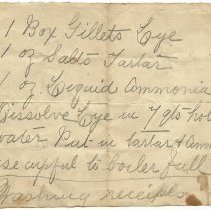 1 Box Gillets Lye
1 oz Salts Tartar
1 oz Liquid Ammonia
Dissolve Lye in 7 qts hot
water. Put in tartar & Amm
use cupful to boiler full
Washing receipts